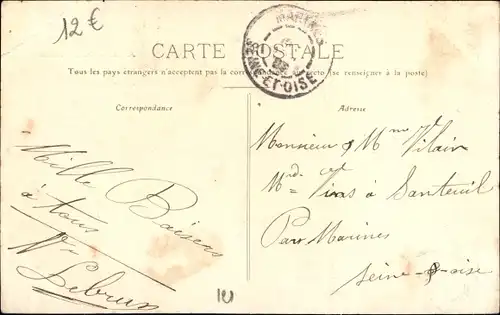 12€
MARINES
SEINE-ET-OISE
CARTE POSTALE
Tous les pays étrangers n'acceptent pas la correspondance au recto (se renseigner à la poste)
Correspondance
Adresse
Mille Baisers
à tous
Vve Lebrun
Monsieur & Mme Vilain
Md Vins à Santeuil
Par Marines
Seine & Oise